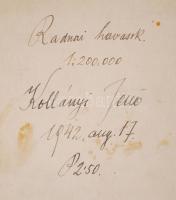 Radnai havasok.
1:200.000
Kollányi Jenő
1942. aug. 17.
P 2.50.